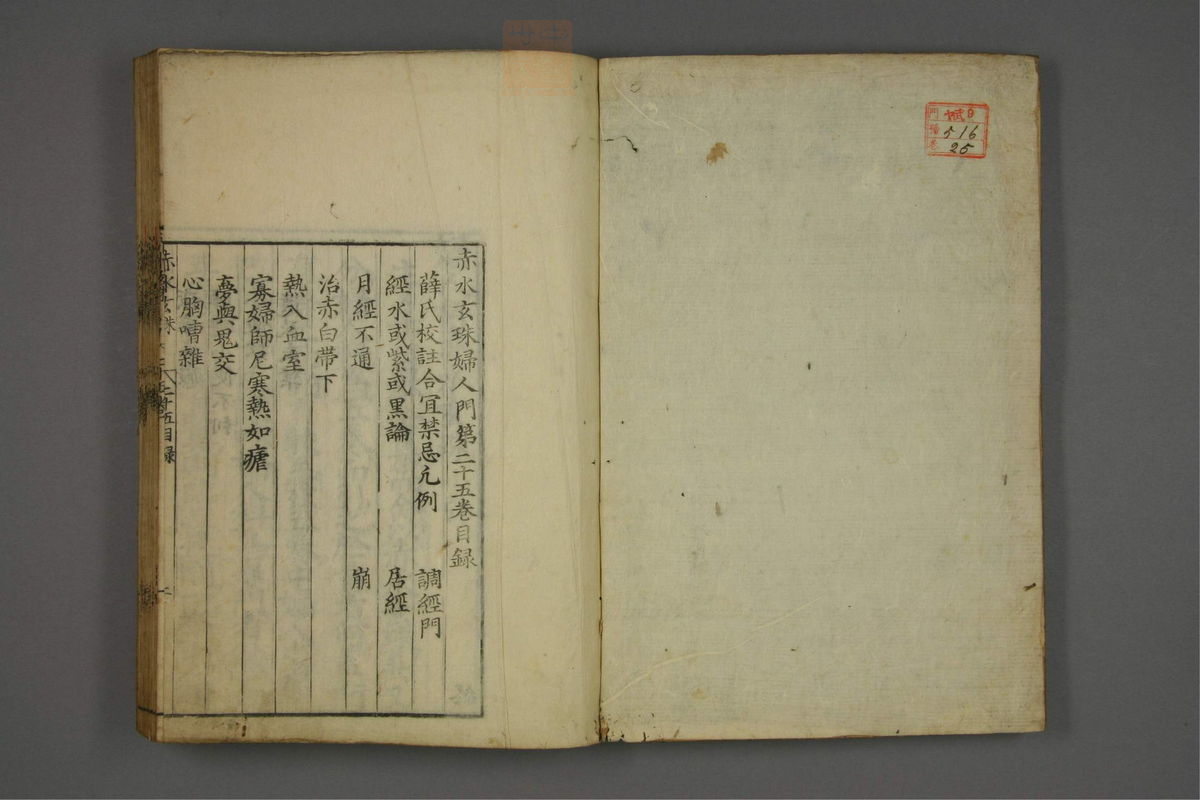 9
門
號 516
卷 25
赤水玄珠婦人門第二十五卷目録
薛氏校註合宜禁忌凢例 調經門
經水或紫或黒論 居經
月經不通 崩
治赤白帶下
熱入血室
寡婦師尼寒熱如瘧
夢與鬼交
心胸嘈雜
赤水玄珠 五目録